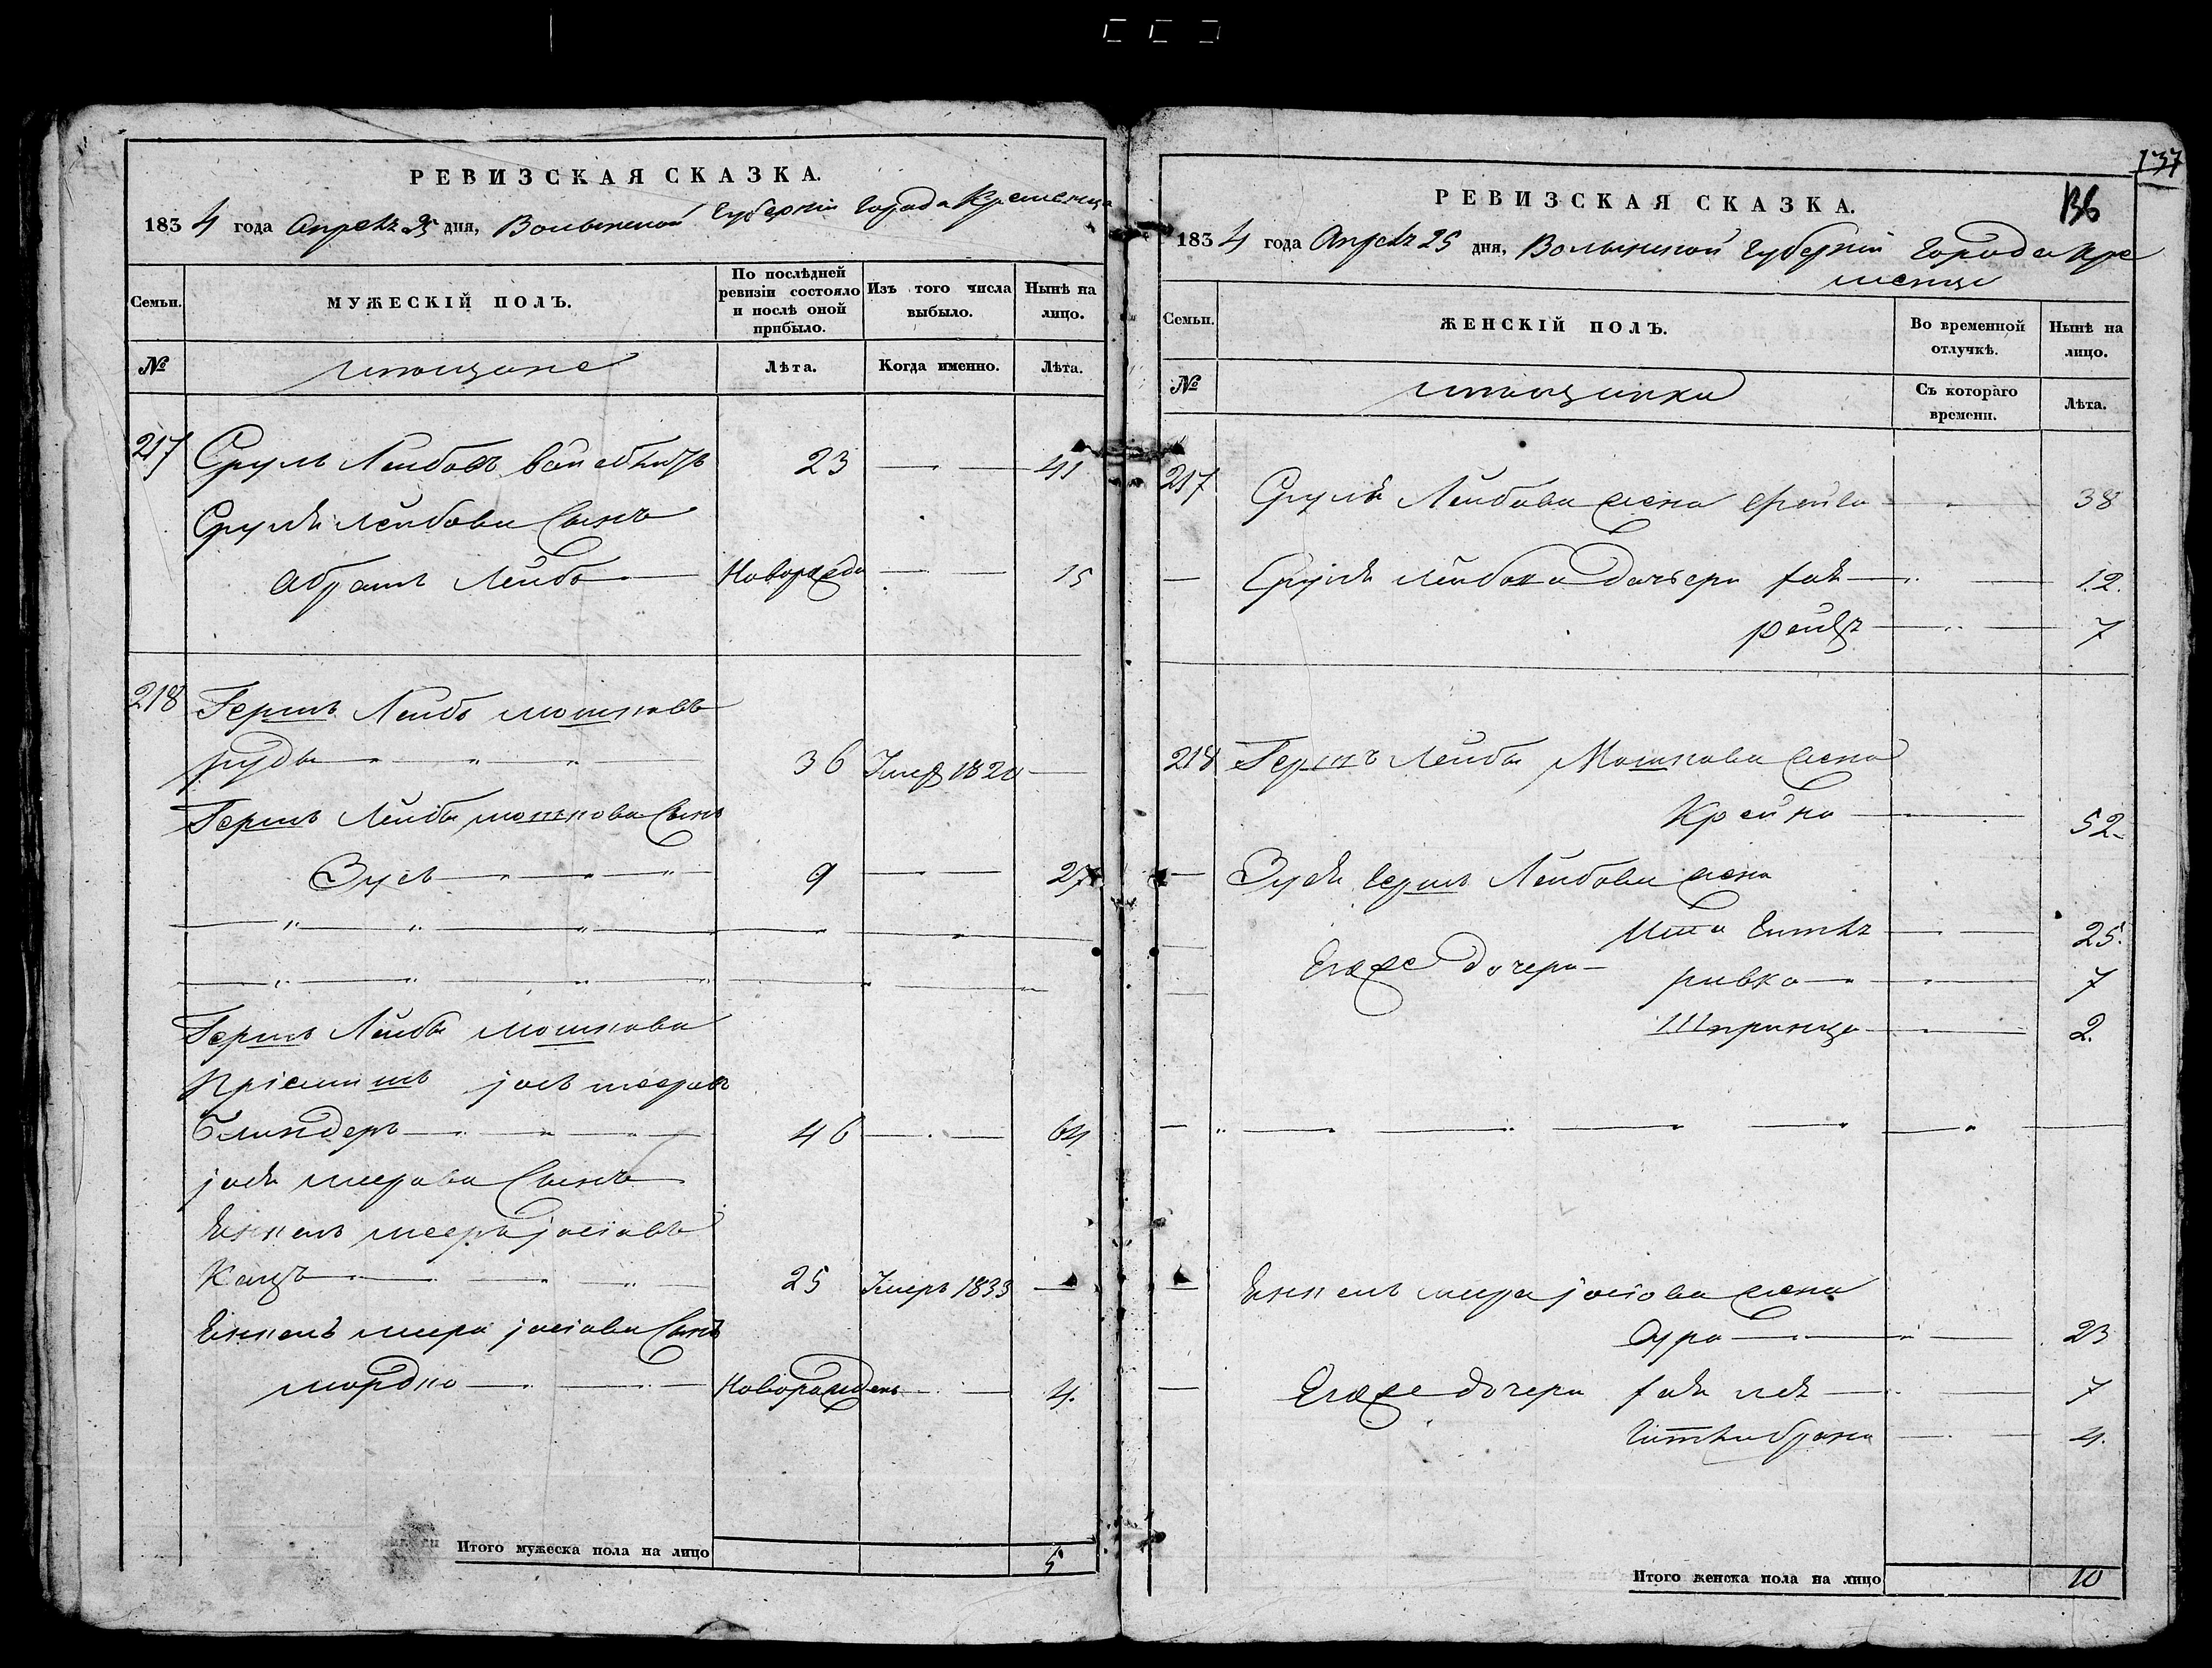 РЕВИЗСКАЯ СКАЗКА.
1834 года Апреля 25 дня, Волынской Губернии Города Кременца
Семьи. МУЖЕСКІЙ ПОЛЪ. По послѣдней ревизіи состояло и послѣ оной прибыло. Изъ того числа выбыло. Нынѣ на лицо.
№ мещане Лѣта. Когда именно. Лѣта.
217 Сруль Лейбовъ 23 41
Сруля Лейбова Сынъ
Абрамъ Лейба Новорожде 15
218 Гершъ Лейба Мошковъ
руды 36 Умер 1820
Гершъ Лейбы мошкова Сынъ
Зусь 9 27
Гершъ Лейбы Мошкова
Пріемишъ іось мееровъ
Блиндеръ 46 64
іося меерова Сынъ
Янкель мееръ іосіовъ
Кацъ 25 Умеръ 1833
Янкель меера іосіова Сынъ
мордко Новорожденъ 4.
Итого мужеска пола на лицо 5
137
136
РЕВИЗСКАЯ СКАЗКА.
1834 года Апреля 25 дня, Волынской Губернии Города Кре
менца
Семьи. ЖЕНСКІЙ ПОЛЪ. Во временной отлучкѣ. Нынѣ на лицо.
№ мещанки Съ котораго времени. Лѣта.
217 Сруля Лейбова жена Фейга 38
Сруля Лейбова дочери 12.
рейзя 7
218 Гершъ Лейбы Мошкова жена
Крейна 52
Зуся Гершъ Лейбова жена
Гитля 25.
Ево же дочери ривка 7
Шпринца 2.
Янкель меера іосіова жена
Сура 23
Ево же дочери 7
4.
Итого женска пола на лицо 10